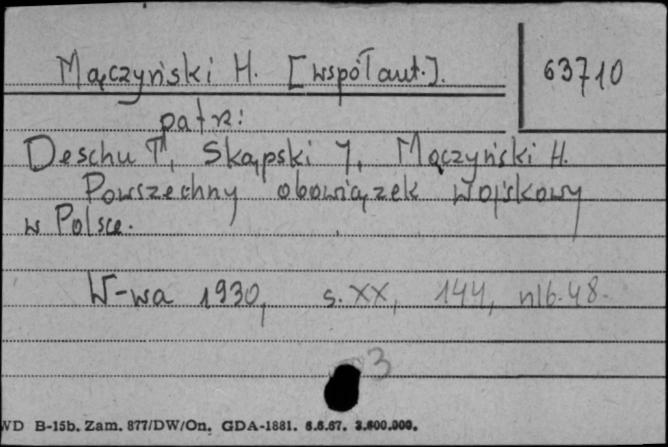 Mączyński H. [współaut.].
63710
patrz:
Deschu T, Skąpski J, Mączyński H.
Powszechny obowiązek wojskowy
w Polsce.
W-wa 1930, s. XX, 144, nlb. 48.
3
WD B-15b. Zam. 877/DW/On. GDA-1881. 6.6.67. 3.600.000.